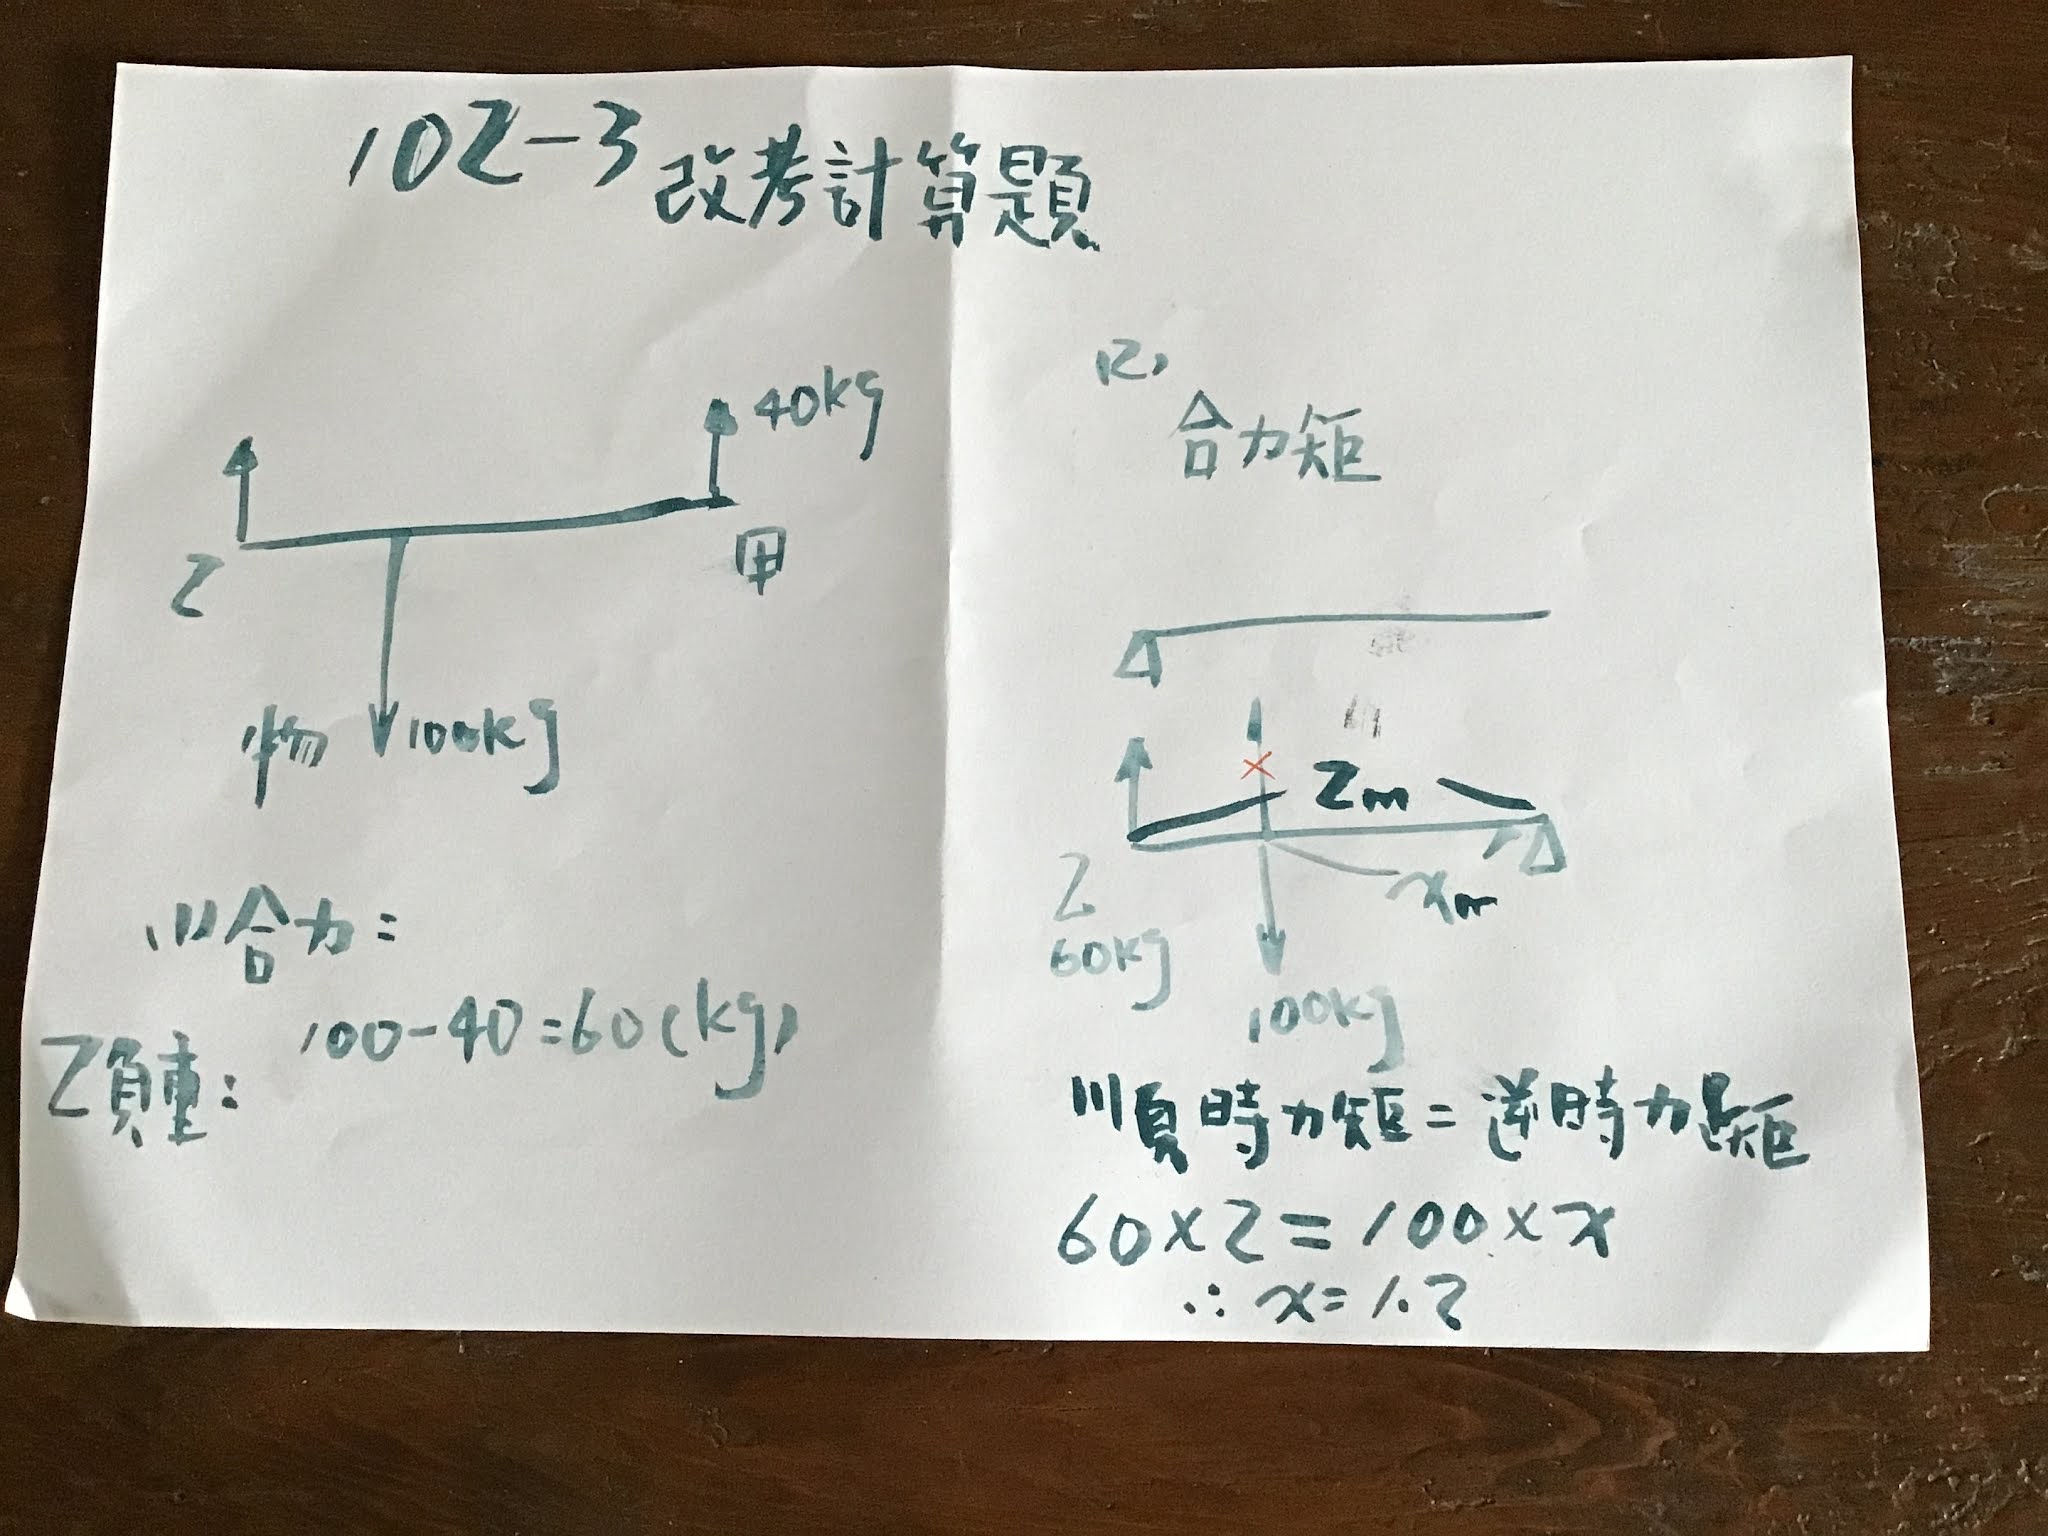 102-3 改考計算題
40kg
乙
甲
物 100kg
(1)合力:
100-40=60(kg)
乙負重:
(2)
合力矩
2m
xm
乙
60kg
100kg
順時力矩=逆時力矩
60×2=100×x
∴ x=1.2